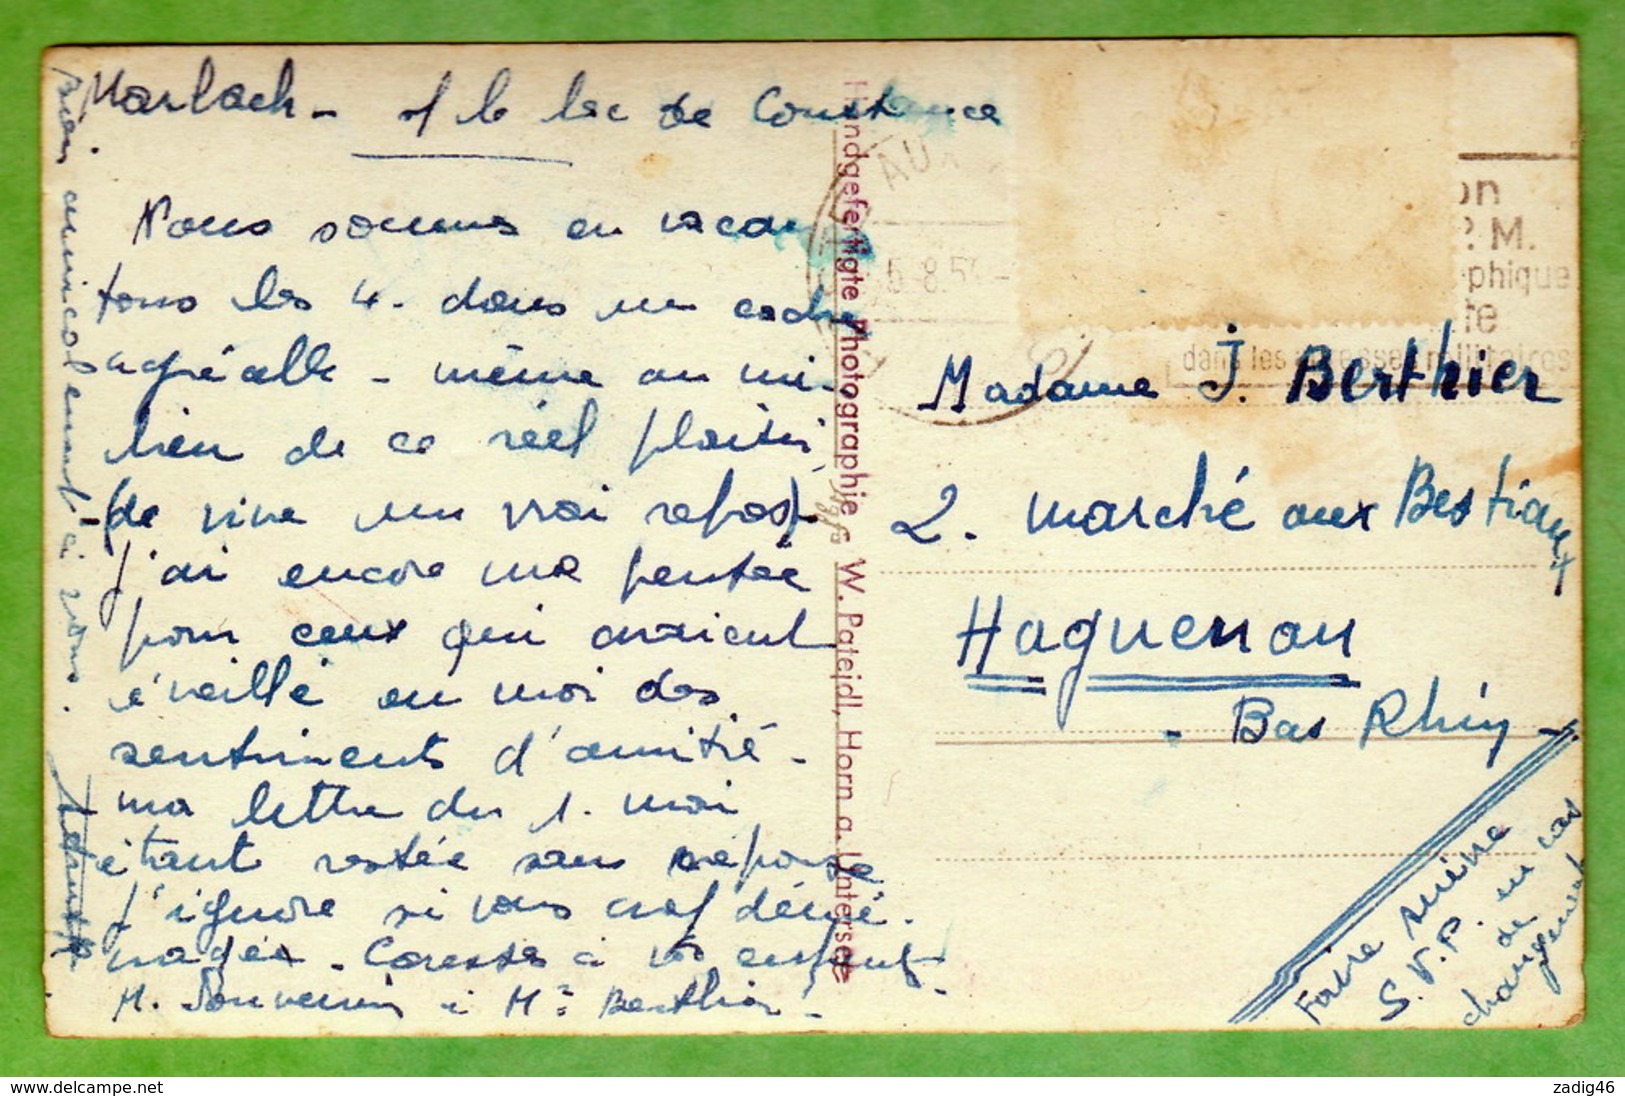 Marbach - s/ le lac de Constance
Nous sommes en vacan
tous les 4. dans un cadre
agréable - même au mi-
lieu de ce réel plaisir
(de vivre un vrai repos)
j'ai encore une pensée
pour ceux qui avaient
éveillé en moi des
sentiments d'amitié -
ma lettre du 1. mai
étant restée sans réponse
j'ignore si vous avez démé-
nagée. Caresses à vos enfants
M. Souvenir à Mr Berthier.
Bien amicalement à vous.
Handgefertigte Photographie W. Patejdl, Horn a. Untersee
AU
5-8.5
on
P.M.
phique
te
dans les adresses militaires
Madame J. Berthier
2. marché aux Bestiaux
Haguenau
- Bas Rhin -
Faire suivre
S.V.P. en cas
de
changement
zadig46
www.delcampe.net